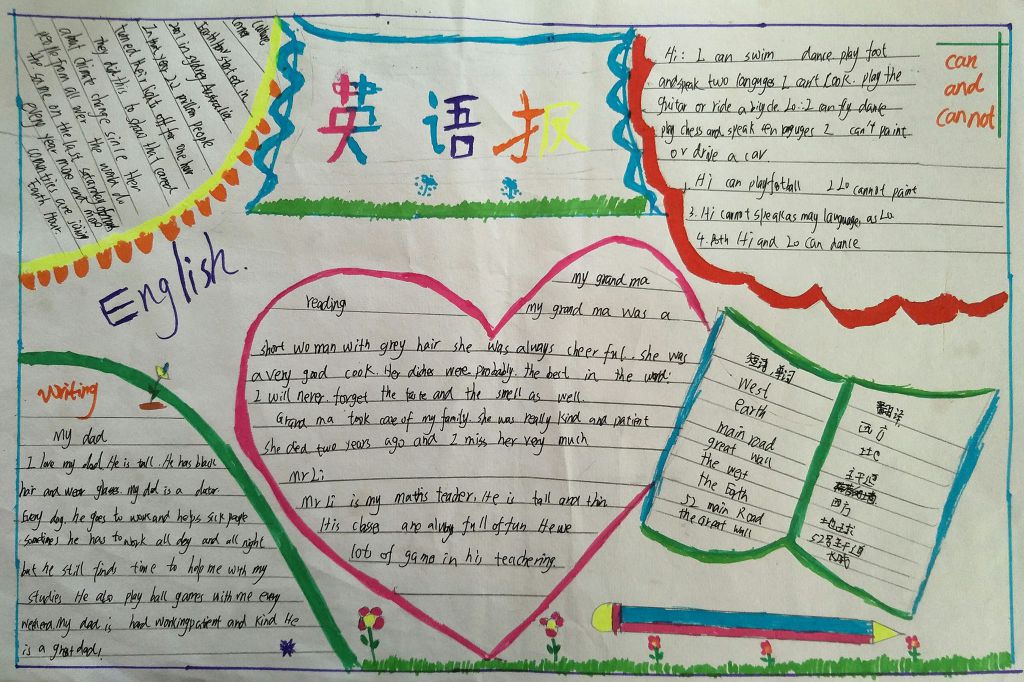 Culture
Corner
Earth Hour started in
2007 in Sydney Australia
In that year 2.2 million people
turned their light off for one hour
they did this to show that cared
about climate change since then
people from all over the world do
the same on the last Saturday of
every year more and more
countries are
Earth Hour.
英语报
can
and
cannot
Hi: I can swim dance play foot
and speak two languages I can't cook. play the
guitar or ride a bicycle Lo: I can fly dance
play chess and speak languages I can't paint
or drive a car
1. Hi can play football 2 Lo cannot paint
3. Hi cannot speak as many languages as Lo
4. Both Hi and Lo can dance
English.
reading
my grand ma
my grand ma was a
short wo man with grey hair she was always cheer ful. she was
a very good cook. Her dishes were probably. the best in the world.
I will never forget the taste and the smell as well
Grand ma took care of my family. she was really kind and patient
she died two years ago and I miss her very much
Mr Li
Mr Li is my maths teacher. He is tall and thin
His classes are always full of fun He use
lots of game in his teachering
writing
My dad
I love my dad. He is tall. He has black
hair and wear glasses. my dad is a doctor
Every day, he goes to work and helps sick people
sometimes he has to work all day and all night
but he still finds time to help me with my
studies He also play ball games with me every
weekend. My dad is hard working patient and kind He
is a great dad!
短语 单词
West
earth
main road
great wall
the west
the Earth
52 main Road
the Great wall
翻译
西方
土地
主干道
西方
地球
52号主干道
长城